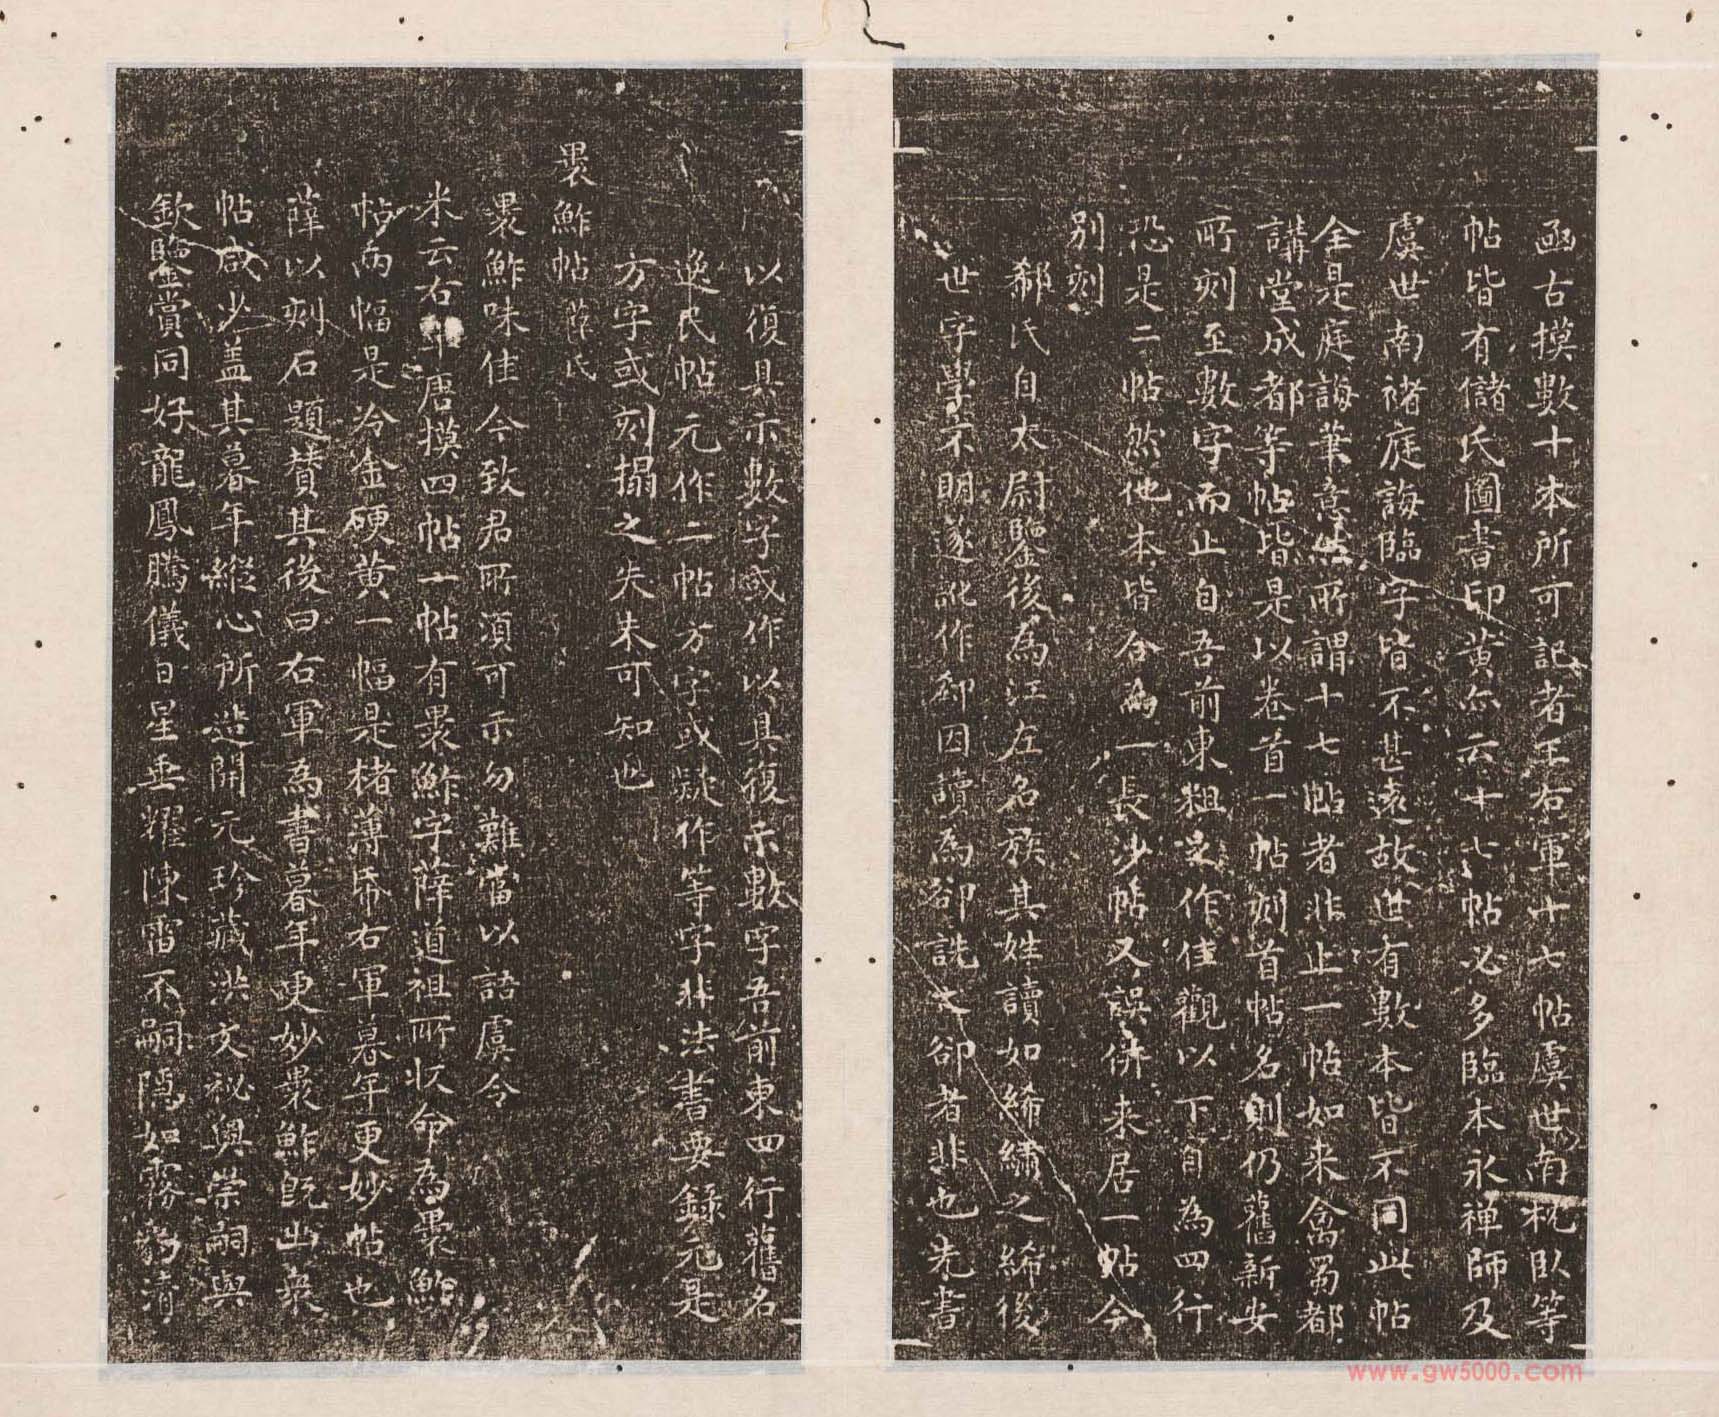 函古摸數十本所可記者王右軍十七帖虞世南枕臥等
帖皆有儲氏圖書印黃尓云十七帖必多臨本永禪師及
虞世南褚庭誨臨字皆不甚遠故世有數本皆不同此帖
全是庭誨筆意然所謂十七帖者非止一帖如来禽蜀都
講堂成都等帖皆是以卷首一帖刻首帖名則仍舊新安
所刻至數字而止自吾前東粗足作佳觀以下自為四行
恐是二帖然他本皆合為一長沙帖又誤併来居一帖今
別刻
郗氏自太尉鑒後為江左名族其姓讀如絺繡之絺後
世字學不明遂訛作郄因讀為卻詵之卻者非也先書
以復具示數字或作以具復示數字吾前東四行舊名
逸民帖元作二帖方字或疑作等字非法書要錄元是
方字或刻搨之失未可知也
褁鮓帖 薛氏
褁鮓味佳今致君所須可示勿難當以語虞令
米云右軍唐摸四帖一帖有褁鮓字薛道祖所收命為褁鮓
帖兩幅是冷金硬黃一幅是楮薄紙右軍暮年更妙帖也
薛以刻石題賛其後曰右軍為書暮年更妙褁鮓既出衆
帖咸少盖其暮年縱心所造開元珍藏洪文祕輿崇嗣與
欽臨鑒賞同好龍鳳騰儀日星垂耀陳雷不嗣隱如霧豹清